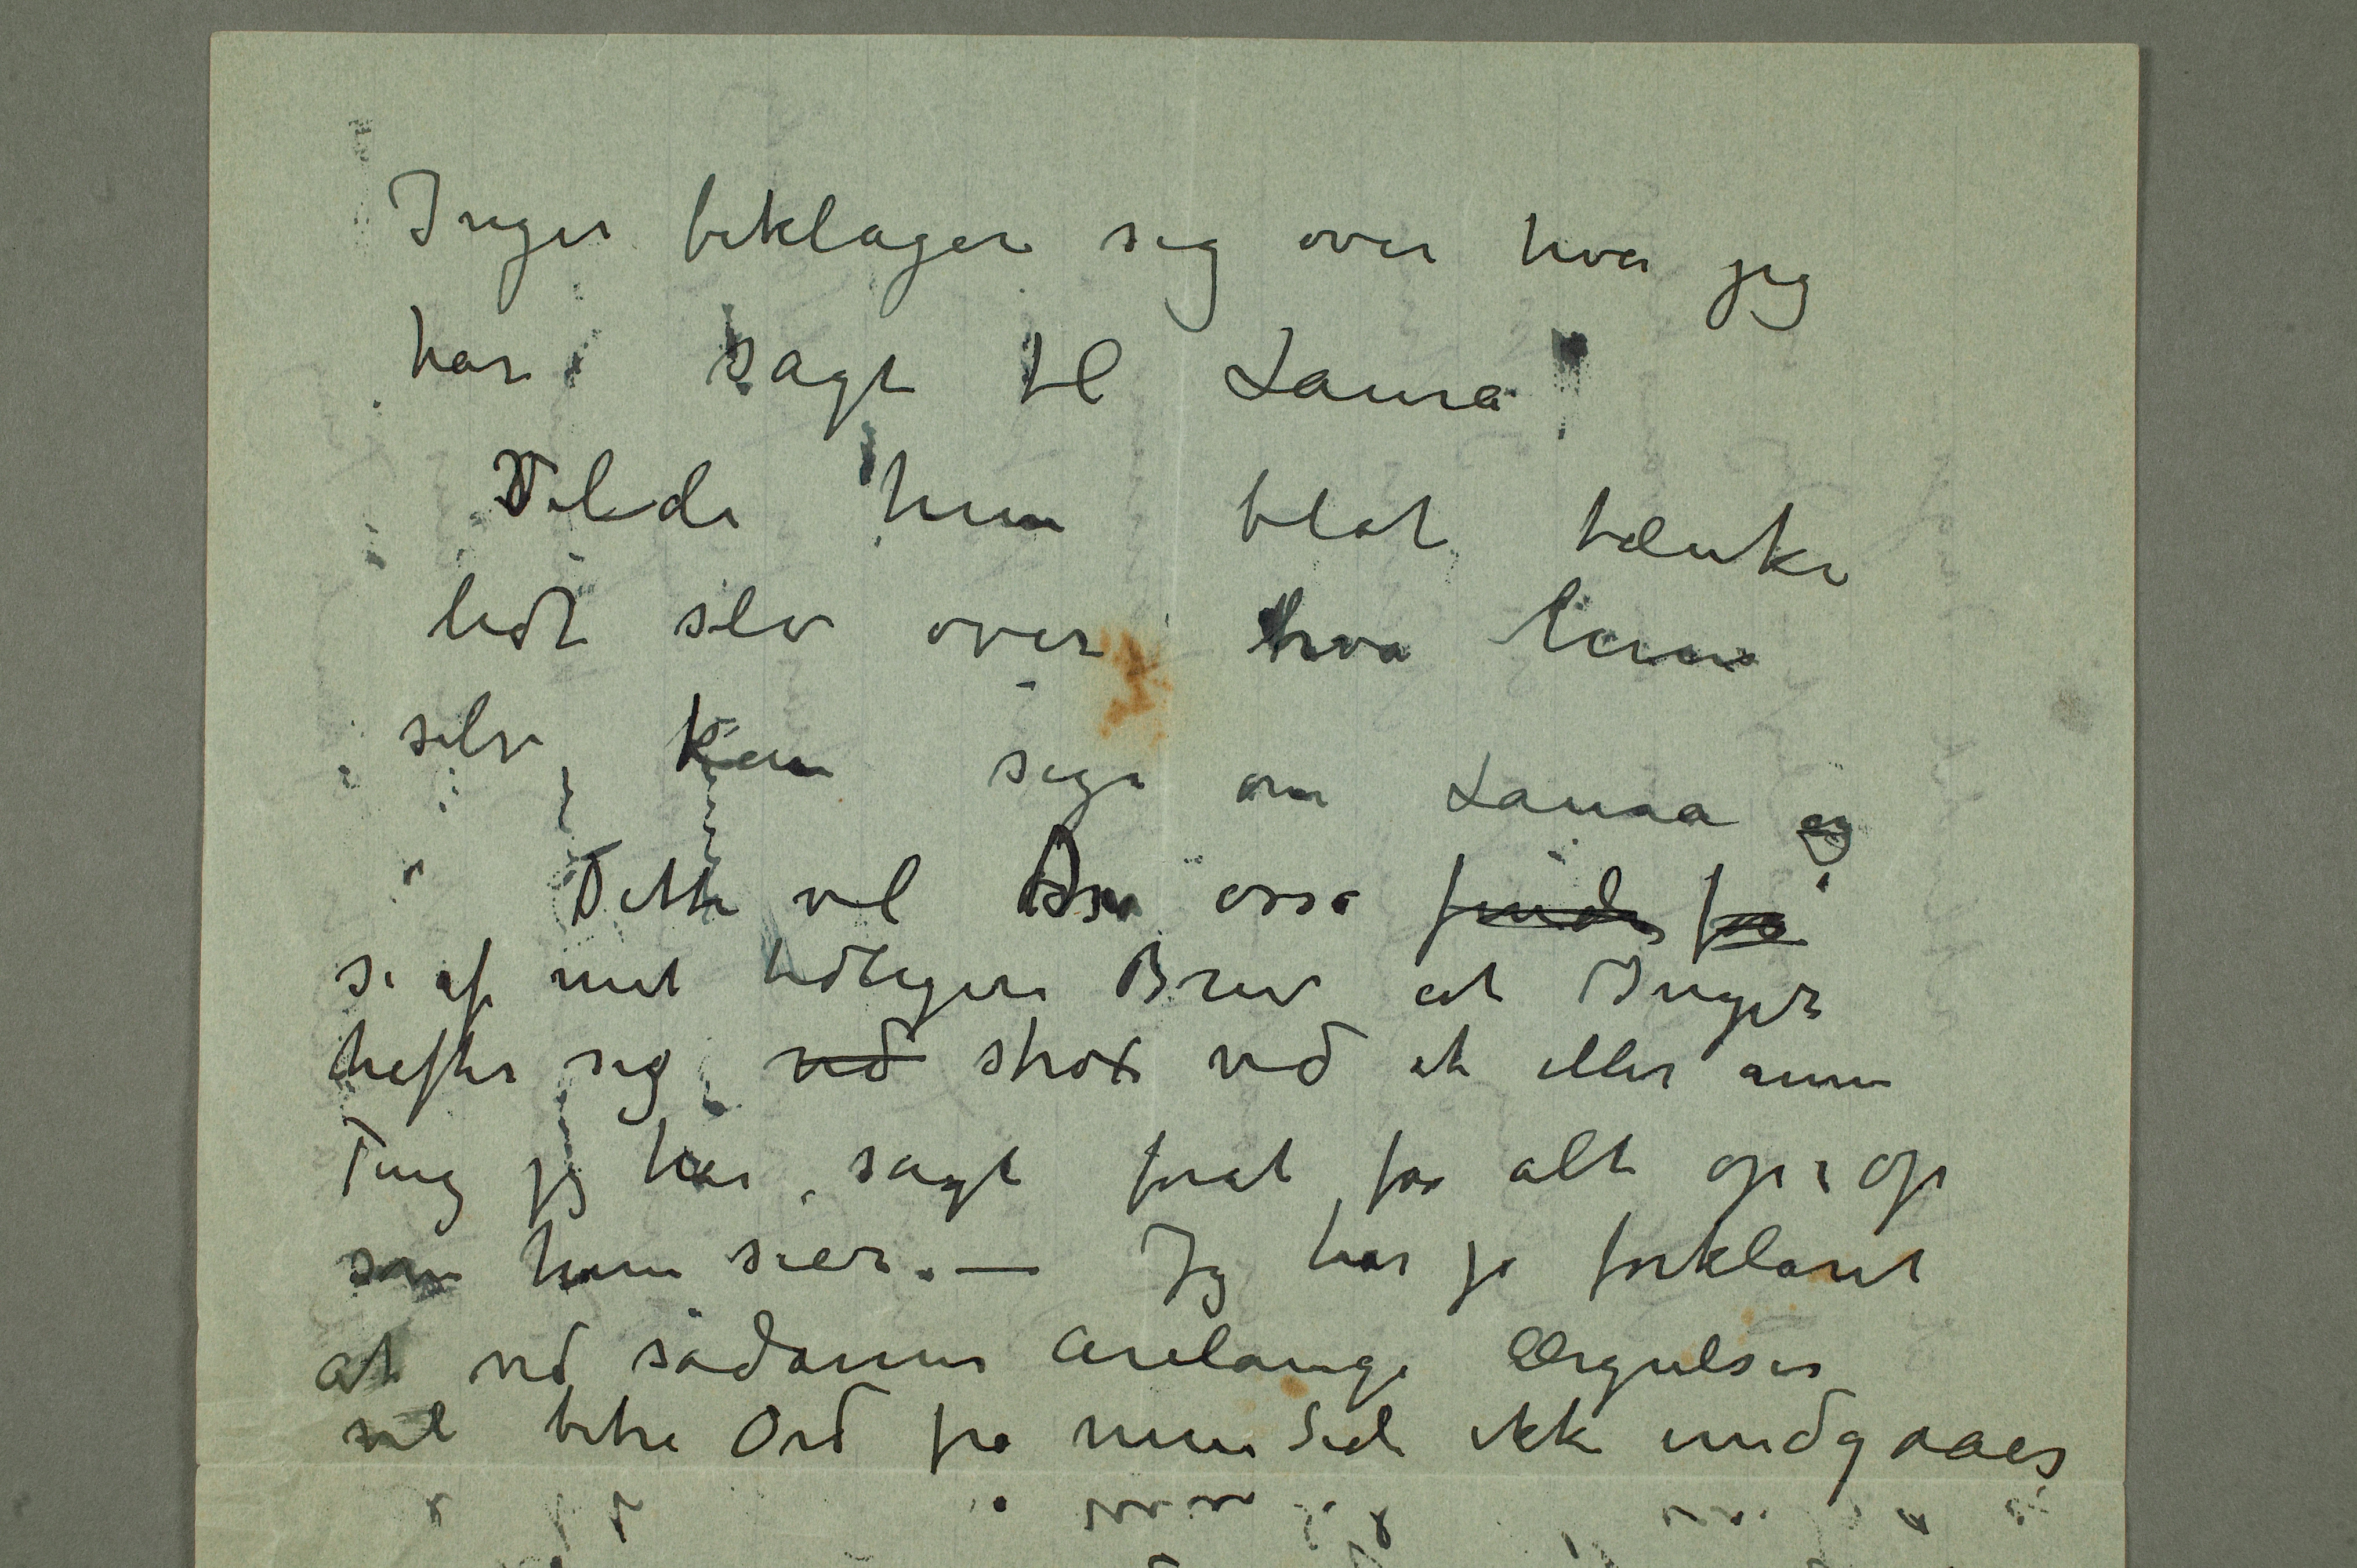 Inger beklager sig over hva jeg
har sagt til Laura
Vilde hun blot tænke
lidt selv over hva hun
selv kan sige om Laura og
Dette vil Du osså finde fra
se af mit tidligere Brev at Inger
hefter sig ved strax ved et eller annen
Ting jeg har sagt forat faa alt op i op
som hun sier. — Jeg har jo forklaret
at ved sådanne årelange Ærgrelser
vil bitre Ord fra min Side ikke undgaaes